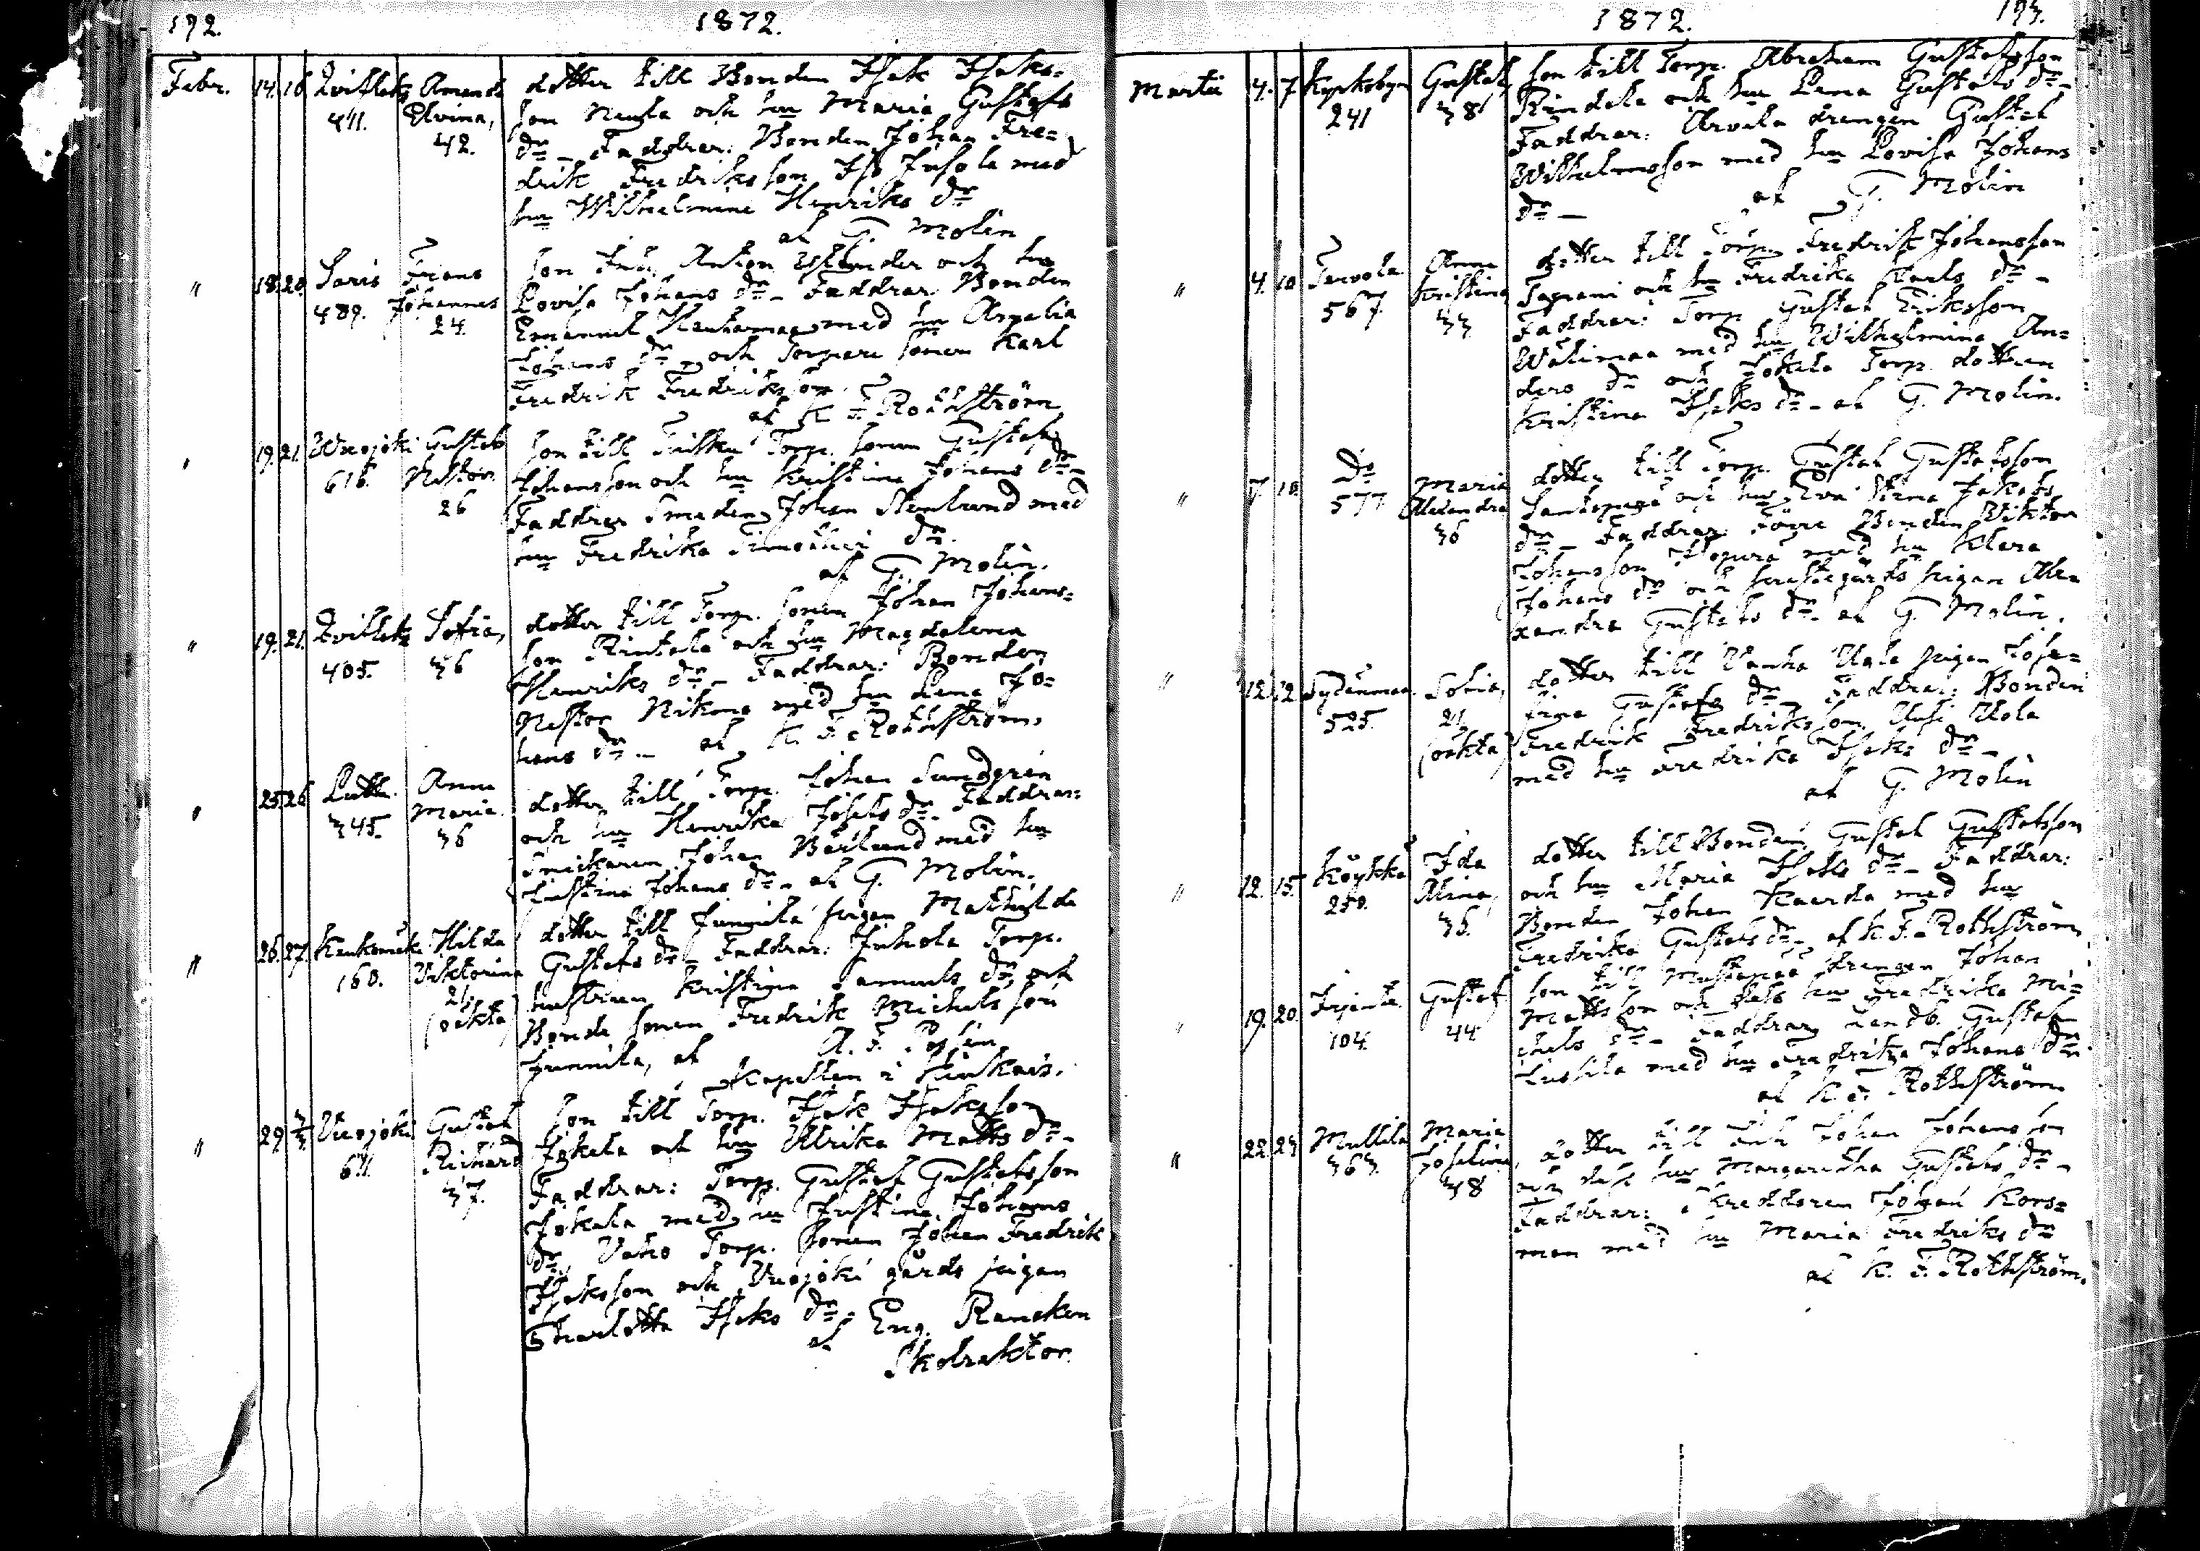 192.
1872.
Febr. 14. 16.
411.
Amanda
Elvina,
42.
dotter till Bonden Isak Isaks=
son och hu Maria Gustafs
dr – Faddrar: Bonden Johan Fre=
drik Fredriksson med
hu Wilhelmina Henriks dr
af G. Molin
" 18. 20.
Saris
489.
Frans
Johannes
24.
son Anton och hu
Lovisa Johans dr – Faddrar Bonden
Emanuel med hu Amalia
Johans dr och Torpare sonen Karl
Fredrik Fredriksson.
af K F Rothström
" 19. 21.
Wuojoki
616.
Gustaf
Nestor.
26
son till Torp. sonen Gustaf
Johansson och hu Kristina Johans dr –
Faddrar Smeden Johan Stenlund med
hu Fredrika Timothei dr.
af G. Molin.
" 19. 21.
405.
Sofia,
36
dotter till Torp. sonen Johan Johans=
son Rintala och hu Magdalena
Henriks dr – Faddrar: Bonden
Nestor med hu Lena Jo=
hans dr – af K. F. Rothström.
" 25. 26
345.
Anna
Maria
36
dotter till Torp. Johan Sundgren
och hu Henrika Josefs dr. Faddrar:
Snickaren Johan Bärlund med hu
Justina Johans dr – af G. Molin.
" 26. 27.
160.
Hilda
Viktorina
21,
(oäkta)
dotter till Junnila pigan Mathilda
Gustafs dr – Faddrar: Juhola Torp.
hustrun Kristina Samuels dr och
Bonde sonen Fredrik Michelsson
Junnila, af A. F.
Kapellan i Kiukais.
" 29.
Wuojoki
611.
Gustaf
Richard
37.
son till Torp. Isak Isaksson
Jokela och hu Ulrika Matts dr –
Faddrar: Torp. Gustaf Gustafsson
Jokala med hu Justina Johans
dr, Torp. sonen Johan Fredrik
Isaksson och Wuojoki gårds pigan
Charlotta Isaks dr – Eng. Rancken
af Skolrektor.
1872.
193.
Martii 4. 7.
241
Gustaf,
38
son till Torp. Abraham Gustafsson
Rindala och hu Lena Gustafs dr –
Faddrar: Arvela drengen Gustaf
Wilhelmsson med hu Lovisa Johans
dr – af G. Molin
" 4. 10
Tarvola
567.
Anna
Kristina
33
dotter till Torp. Fredrik Johansson
Tapani och hu Fredrika Karls dr –
Faddrar: Torp Gustaf Eriksson
Wälimaa med hu Wilhelmina An=
ders dr och Jokela Torp. dottren
Kristina Isaks dr – af G. Molin.
" 7. 10.
Do
577
Maria
Alexandra
36
dotter till Torp. Gustaf Gustafsson
Santapaga och hu Eva Stina Jakobs
dr – Faddrar: Förre Bonden Viktor
Johansson med hu Klara
Johans dr och pigan Alex=
xandra Gustafs dr – af G. Molin.
" 12. 12
Sydänmaa
525.
Sofia,
21,
(oäkta)
dotter till Vanha Uola pigan Jose=
fina Gustafs dr – Faddrar: Bonden
Fredrik Fredriksson Uusi Uola
med hu Fredrika Isaks dr –
af G. Molin
" 12. 15.
Köykkä
250.
Ida
Alina,
35.
dotter till Bonden Gustaf Gustafsson
och hu Maria Isaks dr – Faddrar:
Bonden Johan Kaarda med hu
Fredrika Gustafs dr – af K. F. Rothström
" 19. 20.
Irjanta
104.
Gustaf
44.
son till drengen Johan
Mattsson och dess hu Fredrika Mi=
chels dr – Faddrar: Gustaf
med hu Fredrika Johans dr.
af K F. Rothström
" 22. 23
Mullila
363.
Maria
Josefina,
38
dotter till Johan Johansson
och dess hu Margaretha Gustafs dr –
Faddrar: Skreddaren Johan Kors=
man med hu Maria Fredriks dr
af K. F. Rothström.